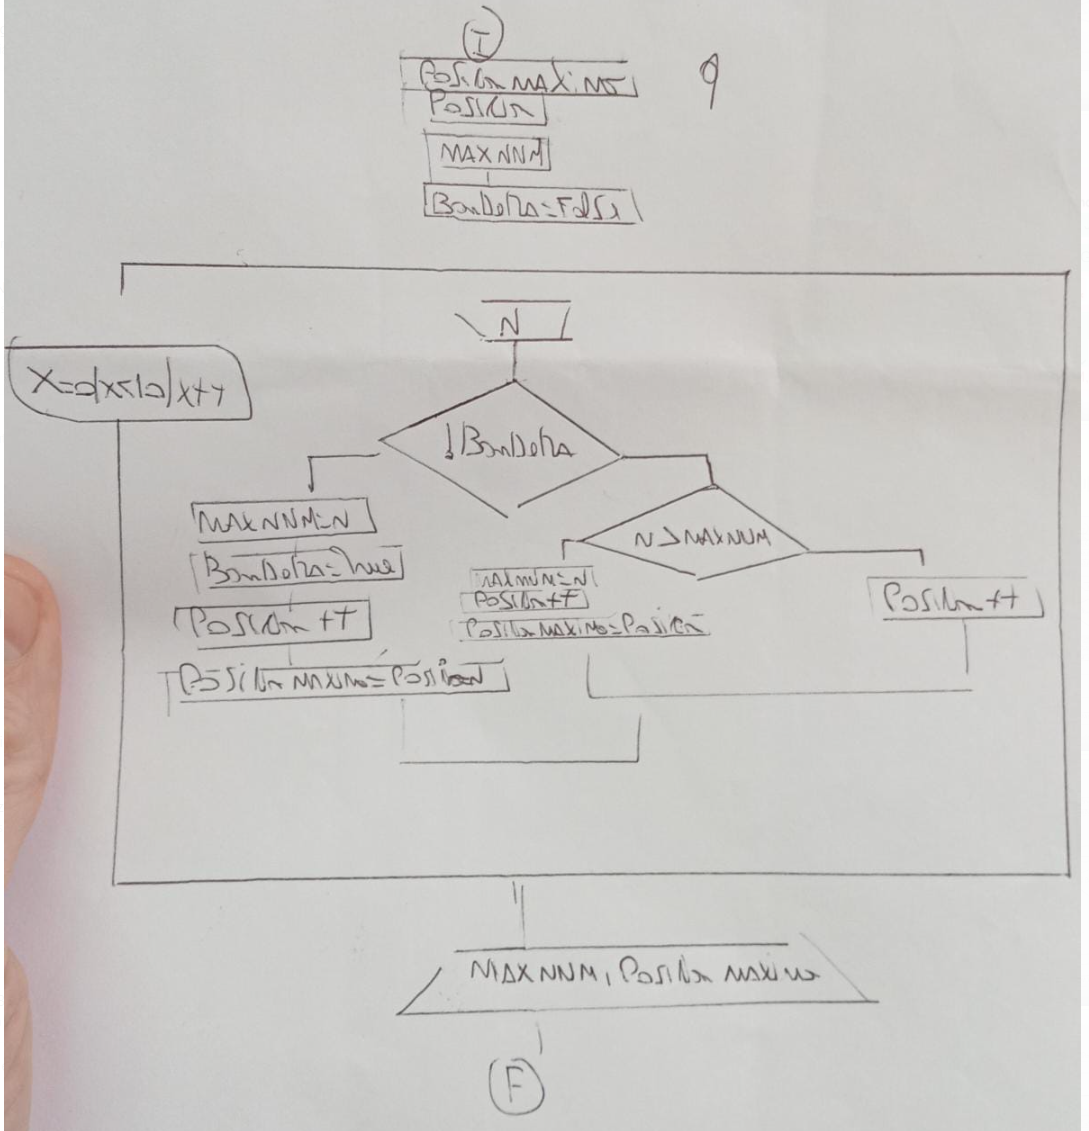 I
Posición MAXimo
9
Posición
MAXNUM
Bandera=False
N
X=0|X<10|X++
!Bandera
MAXNUM=N
Bandera=True
Posición ++
Posición MAXimo=Posición
N>MAXNUM
MAXNUM=N
Posición++
Posición MAXimo=Posición
Posición++
MAXNUM, Posición MAXimo
F